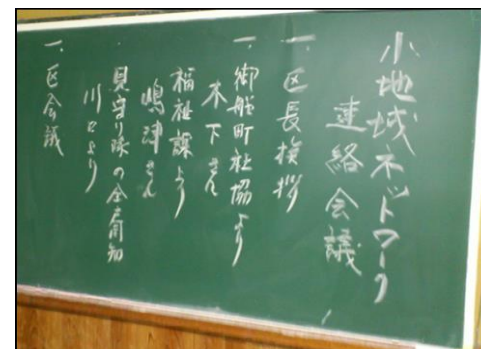 小地域ネットワーク
連絡会議
一、区長挨拶
一、御船町社協より
木下さん
福祉課より
嶋津さん
見守り隊の全戸周知
川口より
一、区会議